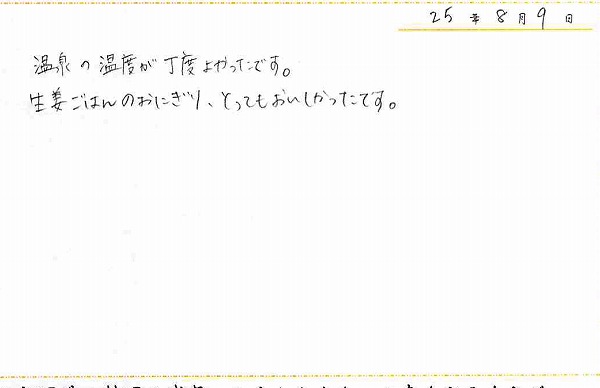 25年8月9日
温泉の温度が丁度よかったです。
生姜ごはんのおにぎり、とってもおいしかったです。